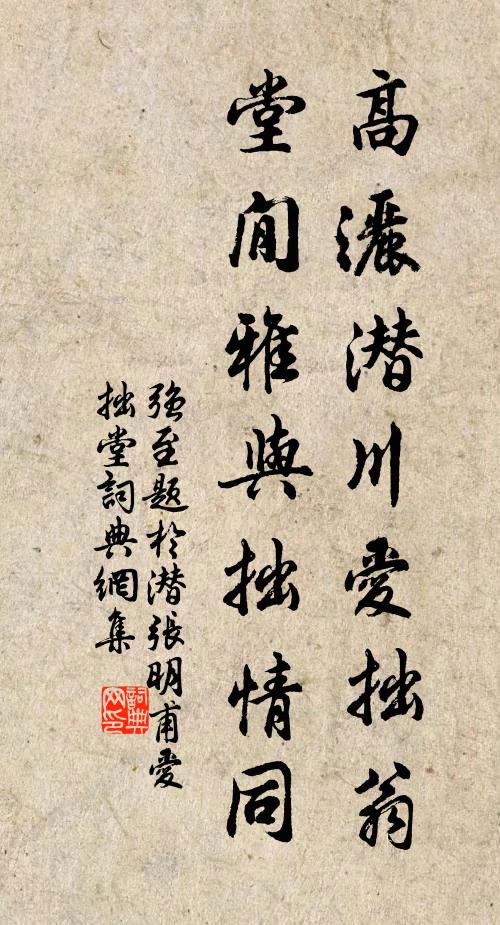 高灑潛川愛拙翁
堂閒雅與拙情同
強至題於潛張明甫愛
拙堂詞典網集
詞典
网印